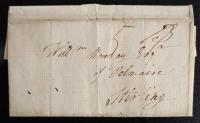 Willm Murray Esqr
of Polmaise
Stirling